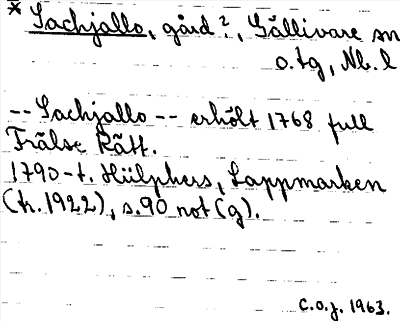 * Sachjallo, gård?, Gällivare sn
o. tg, Nb. l
-- Sachjallo -- erhölt 1768 full
Frälse Rätt.
1790-t. Hülphers, Lappmarken
(tr. 1922), s. 90 not (g).
C.O.J. 1963.